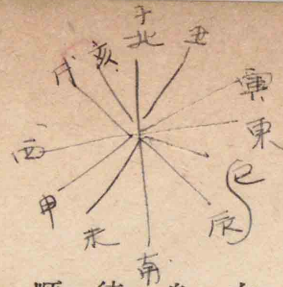 子
北
丑
寅
東
巳
辰
南
未
申
西
戌
亥